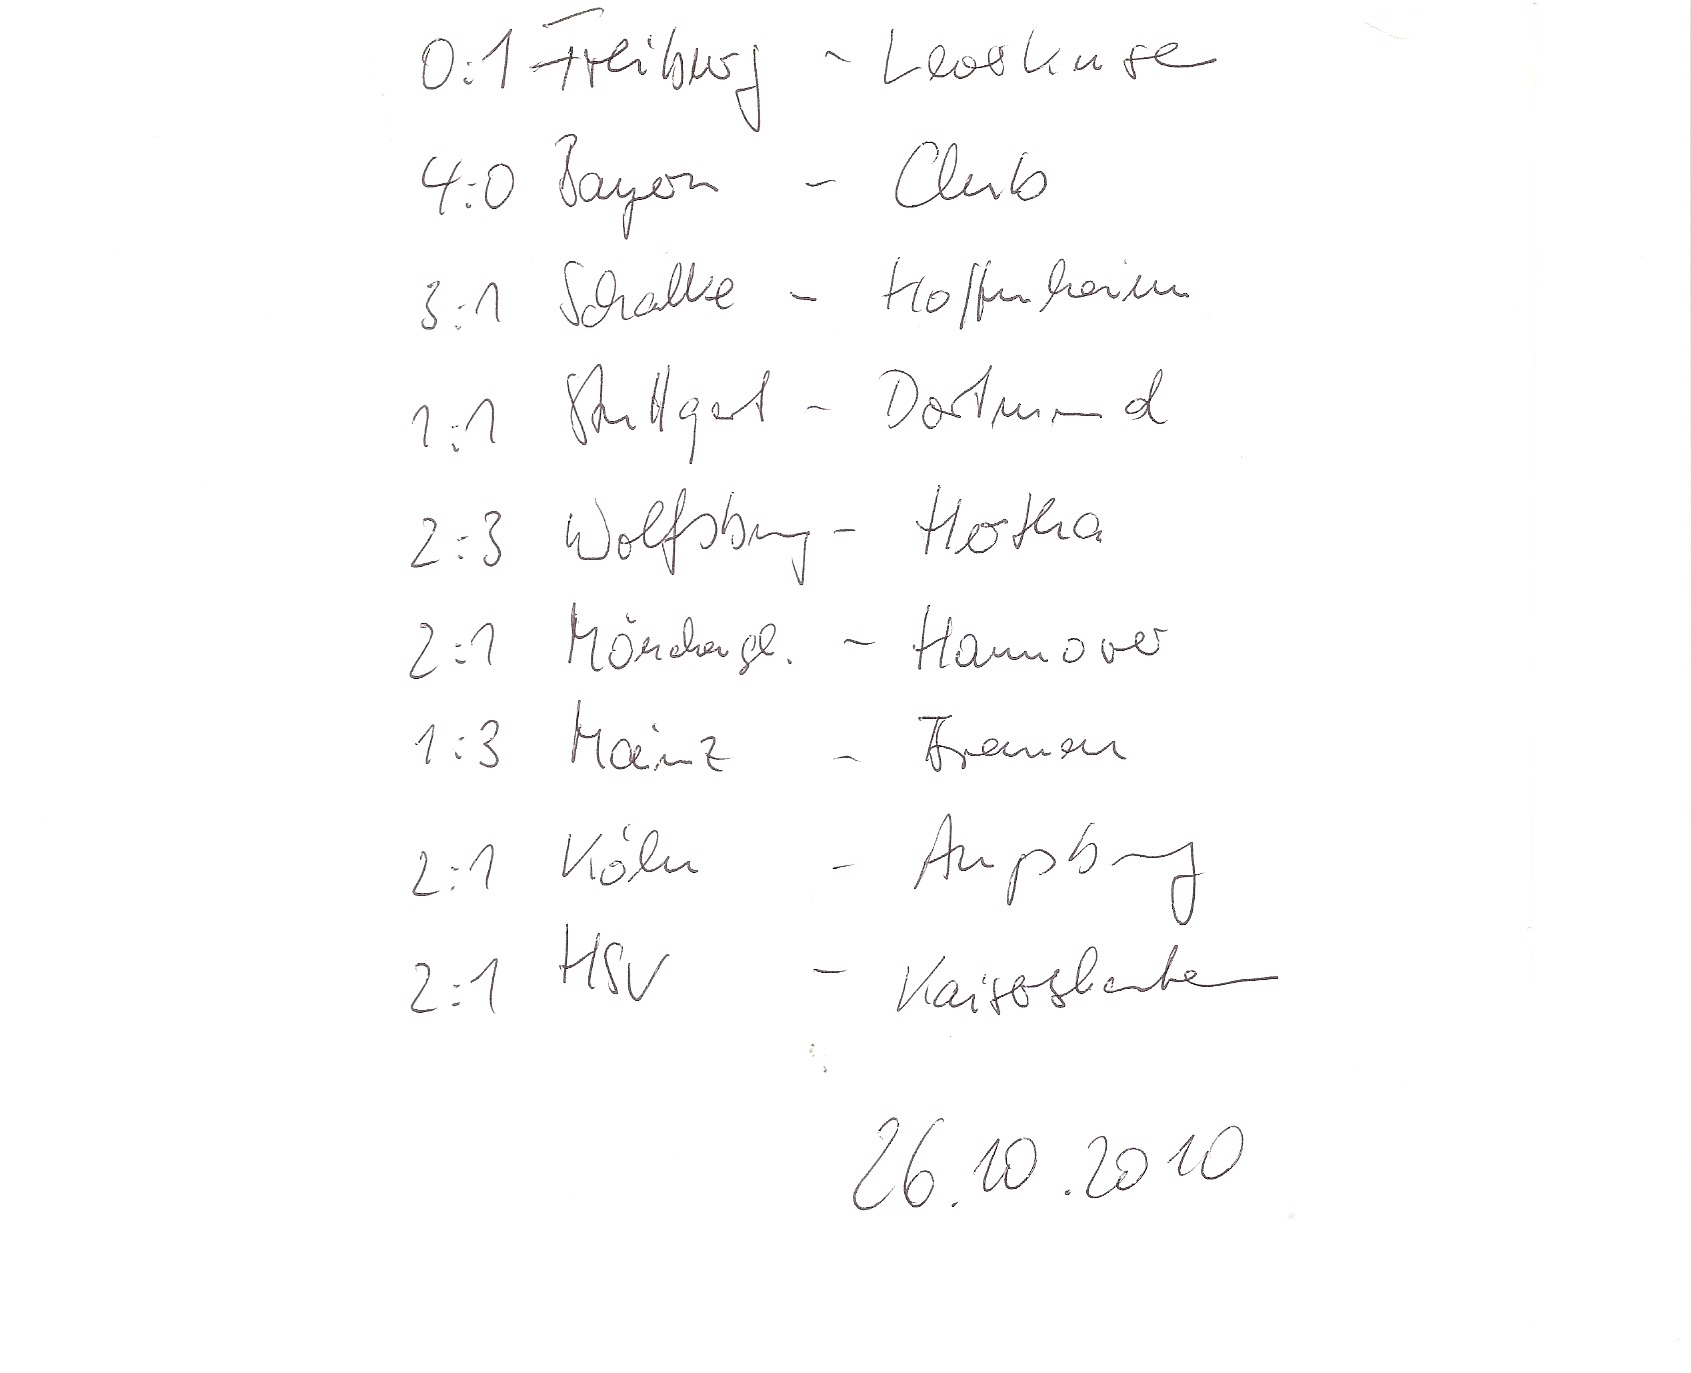 0:1 Freiburg - Leverkusen
4:0 Bayern - Club
3:1 Schalke - Hoffenheim
1:1 Stuttgart - Dortmund
2:3 Wolfsburg - Hertha
2:1 Mönchengl. - Hannover
1:3 Mainz - Bremen
2:1 Köln - Augsburg
2:1 HSV - Kaiserslautern
26.10.2010